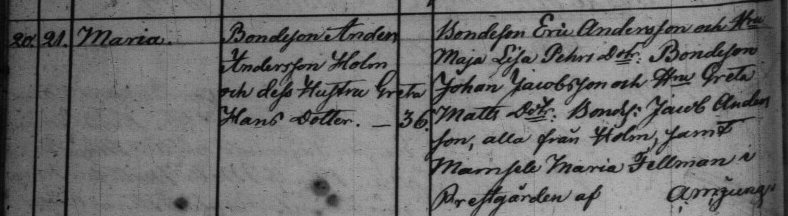 20. 21. Maria. Bondeson Anders Bondeson Eric Andersson och Hru
Andersson Holm Maja Lisa Pehrs Dotr: Bondeson
och dess Hustru Greta Johan Jacobsson och Hru Greta
Hans Dotter. — 36. Matts Dotr. Bonds: Jacob Anders
son, alla från Holm, samt
Mamsele Maria Fellman i
Prestgården af